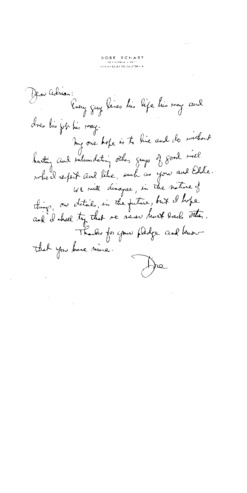 DORE SCHARY
Dear Adrian:
Every guy lives his life his way and
does his job his way.
My one hope is to live and do without
hurting and intimidating other guys of good will
who I respect and like, such as you and Eddie.
We will disagree, in the nature of
things, on details, in the future, but I hope
and I shall try that we never hurt each other.
Thanks for your pledge and know
that you have mine.
Dore